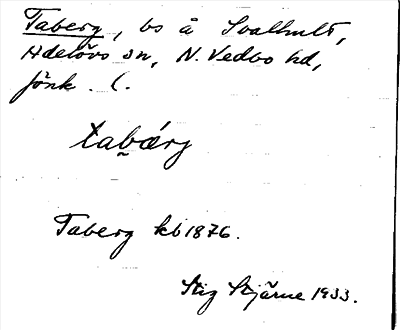 Taberg, bs å Svalhult,
Adelövs sn, N. Vedbo hd,
Jönk. l.
tabærj
Taberg kb 1876.
Stig Stjärne 1933.